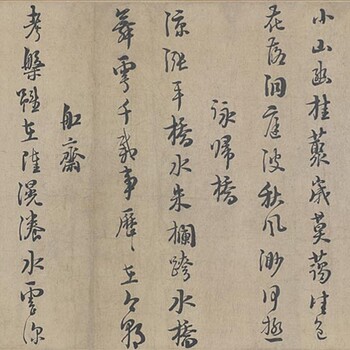 小山幽桂叢歲莫藹佳色
花落洞庭波秋風渺何極
詠歸橋
漲平橋水朱欄跨水橋
舞雩千載事歷歷在今朝
船齋
考槃雖在陸滉瀁水雲深